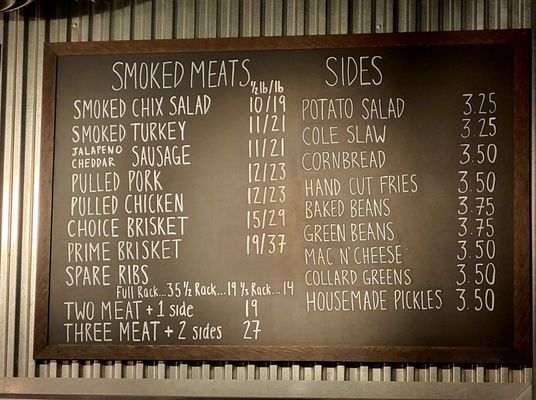 SMOKED MEATS ½lb/lb
SMOKED CHIX SALAD 10/19
SMOKED TURKEY 11/21
JALAPENO CHEDDAR SAUSAGE 11/21
PULLED PORK 12/23
PULLED CHICKEN 12/23
CHOICE BRISKET 15/29
PRIME BRISKET 19/37
SPARE RIBS
Full Rack...35 ½ Rack...19 ⅓ Rack...14
TWO MEAT + 1 side 19
THREE MEAT + 2 sides 27
SIDES
POTATO SALAD 3.25
COLE SLAW 3.25
CORNBREAD 3.50
HAND CUT FRIES 3.50
BAKED BEANS 3.75
GREEN BEANS 3.75
MAC N' CHEESE 3.50
COLLARD GREENS 3.50
HOUSEMADE PICKLES 3.50